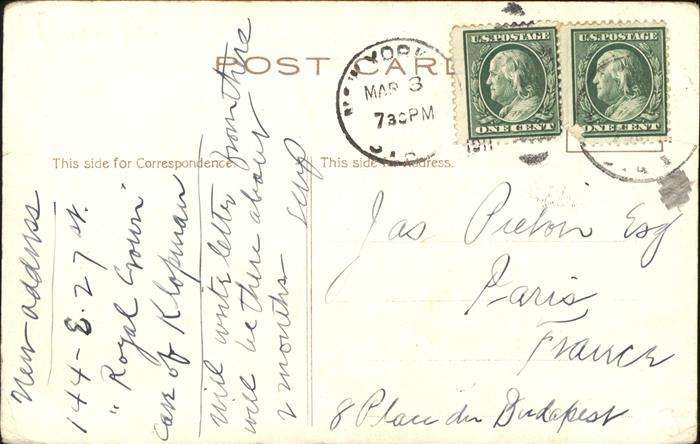 POST CARD
This side for Correspondence.
This side for Address.
NEW YORK
MAR 3
7 30 PM
1911
U.S. POSTAGE
ONE CENT
U.S. POSTAGE
ONE CENT
New address
144 - E. 27 st.
"Royal Crown"
care of Klopman
will write letter from there
will be there about
2 months
Jas Esq
Paris
France
8 Place du Budapest